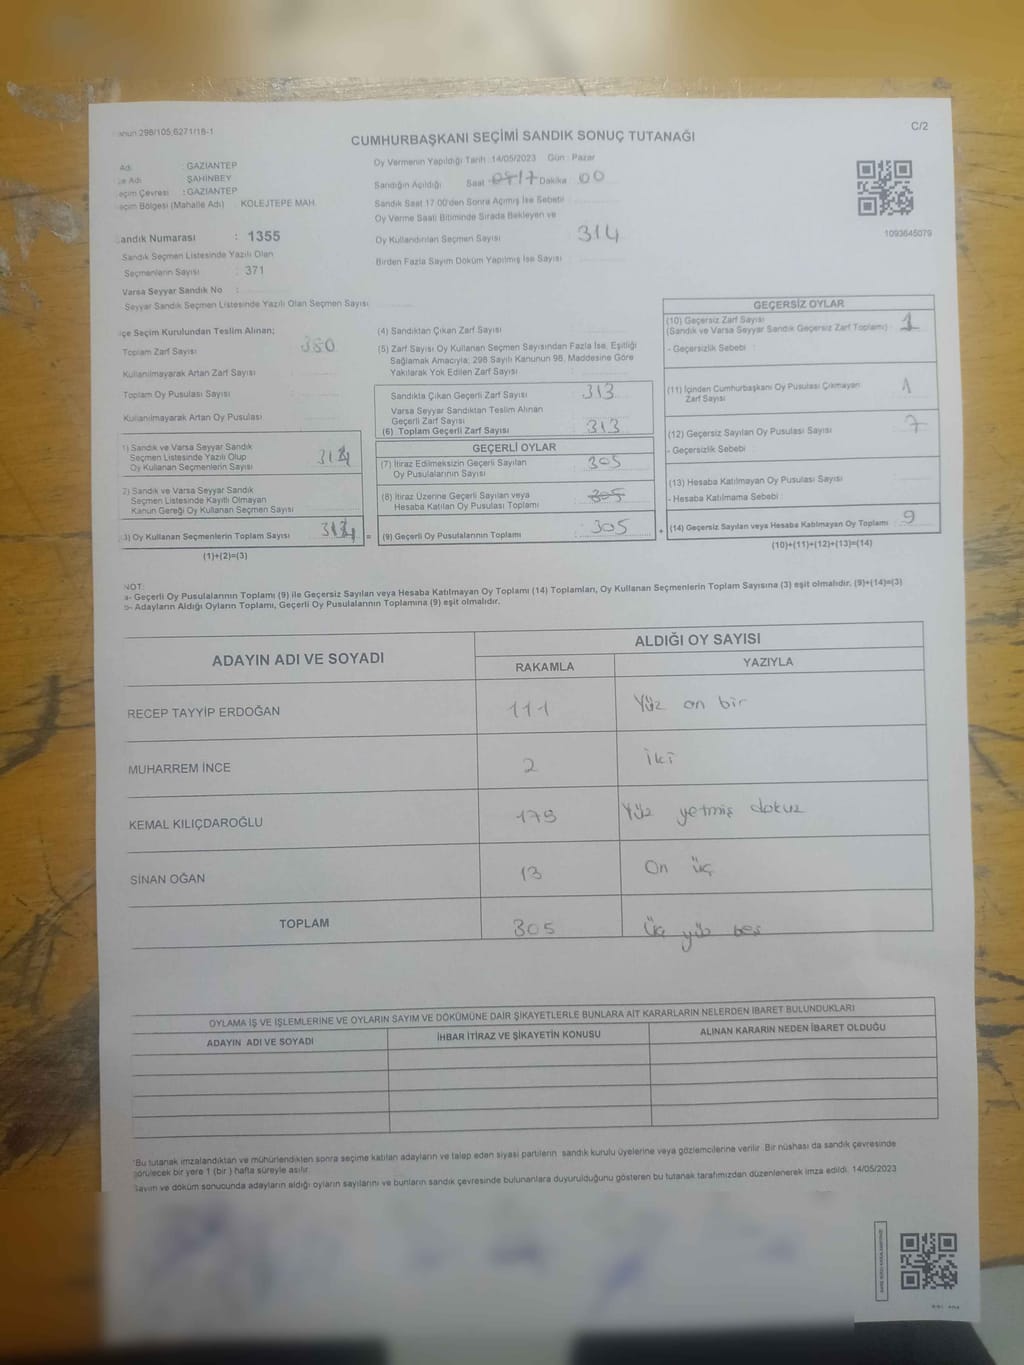 Kanun:298/105,6271/18-1
C/2
CUMHURBAŞKANI SEÇİMİ SANDIK SONUÇ TUTANAĞI
Adı : GAZİANTEP
Adı : ŞAHİNBEY
Seçim Çevresi : GAZİANTEP
Seçim Bölgesi (Mahalle Adı) KOLEJTEPE MAH.
Sandık Numarası : 1355
Sandık Seçmen Listesinde Yazılı Olan
Seçmenlerin Sayısı : 371
Varsa Seyyar Sandık No :
Seyyar Sandık Seçmen Listesinde Yazılı Olan Seçmen Sayısı
Oy Vermenin Yapıldığı Tarih :14/05/2023 Gün : Pazar
Sandığın Açıldığı Saat 17 Dakika 00
Sandık Saat 17.00'den Sonra Açımış İse Sebebi
Oy Verme Saati Bitiminde Sırada Bekleyen ve
Oy Kullandırılan Seçmen Sayısı 314
Birden Fazla Sayım Döküm Yapılmış İse Sayısı
1093645079
İlçe Seçim Kurulundan Teslim Alınan;
Toplam Zarf Sayısı 380
Kullanılmayarak Artan Zarf Sayısı
Toplam Oy Pusulası Sayısı
Kullanılmayarak Artan Oy Pusulası
1) Sandık ve Varsa Seyyar Sandık
Seçmen Listesinde Yazılı Olup
Oy Kullanan Seçmenlerin Sayısı
2) Sandık ve Varsa Seyyar Sandık
Seçmen Listesinde Kayıtlı Olmayan
Kanun Gereği Oy Kullanan Seçmen Sayısı
(3) Oy Kullanan Seçmenlerin Toplam Sayısı
=
(1)+(2)=(3)
(4) Sandıktan Çıkan Zarf Sayısı
(5) Zarf Sayısı Oy Kullanan Seçmen Sayısından Fazla İse, Eşitliği
Sağlamak Amacıyla; 298 Sayılı Kanunun 98. Maddesine Göre
Yakılarak Yok Edilen Zarf Sayısı
Sandıkta Çıkan Geçerli Zarf Sayısı 313
Varsa Seyyar Sandıktan Teslim Alınan
Geçerli Zarf Sayısı
(6) Toplam Geçerli Zarf Sayısı 313
GEÇERLİ OYLAR
(7) İtiraz Edilmeksizin Geçerli Sayılan
Oy Pusulalarının Sayısı 305
(8) İtiraz Üzerine Geçerli Sayılan veya
Hesaba Katılan Oy Pusulası Toplamı 305
(9) Geçerli Oy Pusulalarının Toplamı 305
+
GEÇERSİZ OYLAR
(10) Geçersiz Zarf Sayısı
(Sandık ve Varsa Seyyar Sandık Geçersiz Zarf Toplamı) 1
- Geçersizlik Sebebi :
(11) İçinden Cumhurbaşkanı Oy Pusulası Çıkmayan
Zarf Sayısı 1
(12) Geçersiz Sayılan Oy Pusulası Sayısı 7
- Geçersizlik Sebebi
(13) Hesaba Katılmayan Oy Pusulası Sayısı
- Hesaba Katılmama Sebebi
(14) Geçersiz Sayılan veya Hesaba Katılmayan Oy Toplamı 9
(10)+(11)+(12)+(13)=(14)
NOT:
a- Geçerli Oy Pusulalarının Toplamı (9) ile Geçersiz Sayılan veya Hesaba Katılmayan Oy Toplamı (14) Toplamları, Oy Kullanan Seçmenlerin Toplam Sayısına (3) eşit olmalıdır. (9)+(14)=(3)
b- Adayların Aldığı Oyların Toplamı, Geçerli Oy Pusulalarının Toplamına (9) eşit olmalıdır.
ADAYIN ADI VE SOYADI
ALDIĞI OY SAYISI
RAKAMLA YAZIYLA
RECEP TAYYİP ERDOĞAN 111 Yüz on bir
MUHARREM İNCE 2 İki
KEMAL KILIÇDAROĞLU 179 Yüz yetmiş dokuz
SİNAN OĞAN 13 On üç
TOPLAM 305 üç yüz beş
OYLAMA İŞ VE İŞLEMLERİNE VE OYLARIN SAYIM VE DÖKÜMÜNE DAİR ŞİKAYETLERLE BUNLARA AİT KARARLARIN NELERDEN İBARET BULUNDUKLARI
ADAYIN ADI VE SOYADI İHBAR İTİRAZ VE ŞİKAYETİN KONUSU ALINAN KARARIN NEDEN İBARET OLDUĞU
*Bu tutanak imzalandıktan ve mühürlendikten sonra seçime katılan adayların ve talep eden siyasi partilerin sandık kurulu üyelerine veya gözlemcilerine verilir. Bir nüshası da sandık çevresinde
görülecek bir yere 1 (bir ) hafta süreyle asılır.
Sayım ve döküm sonucunda adayların aldığı oyların sayılarını ve bunların sandık çevresinde bulunanlara duyurulduğunu gösteren bu tutanak tarafımızdan düzenlenerek imza edildi. 14/05/2023